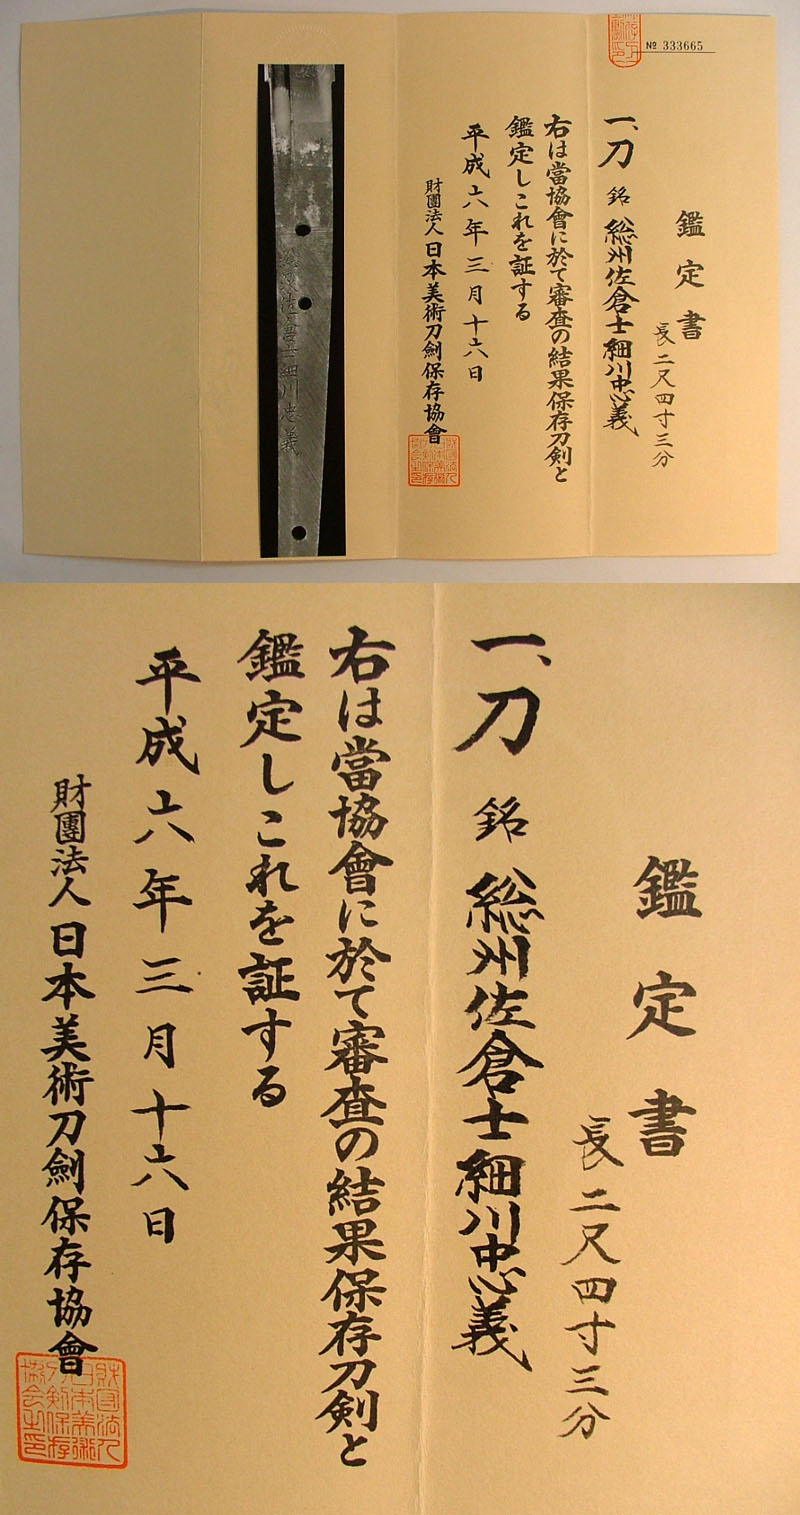 № 333665
鑑定書
長二尺四寸三分
一、刀 銘 総州佐倉士細川忠義
右は當協會に於て審査の結果保存刀剣と
鑑定しこれを証する
平成六年三月十六日
財團法人日本美術刀劍保存協會
総州佐倉士細川忠義
鑑定書
長二尺四寸三分
一、刀 銘 総州佐倉士細川忠義
右は當協會に於て審査の結果保存刀剣と
鑑定しこれを証する
平成六年三月十六日
財團法人日本美術刀劍保存協會